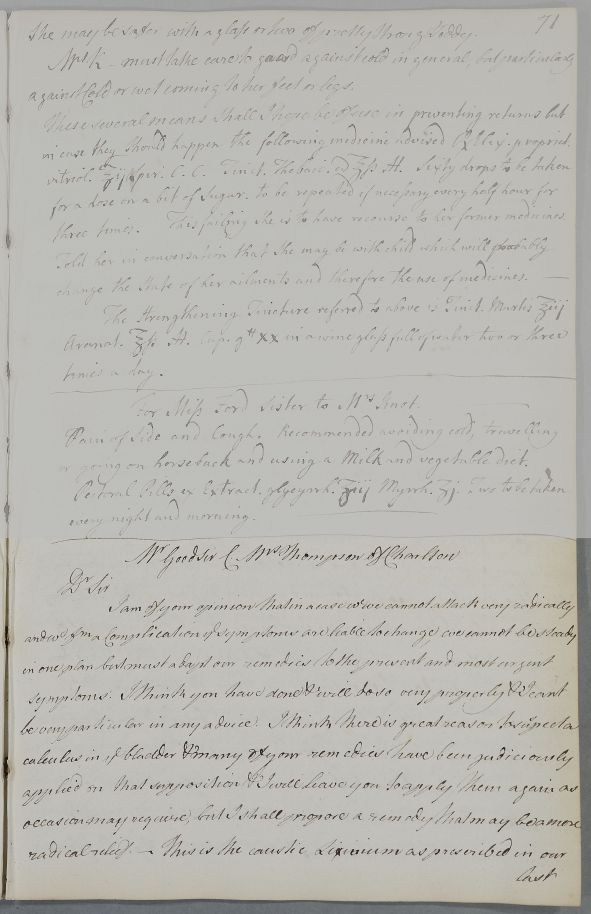 71
she may be safer with a glass or two of pretty strong Toddy.
Mrs K – must take care to guard against cold in general, but particularly
against Cold or wet coming to her feet or legs.
These several means I hope shall be of use in preventing returns but
in case they should happen the following medicine advised Rx Elix. propriet.
vitriol. ʒij Spir. C. C. Tinct. Thebaic. a ʒß M. Sixty drops to be taken
for a dose on a bit of Sugar. to be repeated if necessary every half hour for
three times. This failing she is to have recourse to her former medicines
Told her in conversation that she may be with child which will probably
change the State of her ailments and therefore the use of medicines. —
The Strengthening Tincture referred to above is Tinct. Martis ʒiij
Aromat. ʒß M. Cap. gtt xx in a wine glass full of water two or three
times a day.
For Miss Ford Sister to Mrs Knot.
Pain of Side and Cough. Recommended avoiding cold, travelling
or going on horseback and using a Milk and vegetable diet.
Pectoral Pills ex Extract. glycyrrh. ʒiij Myrrh. ʒj. Two to be taken
every night and morning.
Mr Goodsir C. Mrs Thompson of Charlton
Dr Sir
I am of your opinion that in a case wc we cannot attack very radically
and wc fm a Complication of symptoms are liable to change we cannot be steady
in one plan but must adapt our remedies to the present and most urgent
symptoms. I think you have done & will do so very properly & I cant
be very particular in any advice. I think there is great reason to suspect a
calculus in ye bladder & many of your remedies have been judiciously
applied on that supposition & I will leave you to apply them again as
occasion may require, but I shall propose a remedy that may be a more
radical relief. – This is the caustic Lixivium as prescribed in our
last